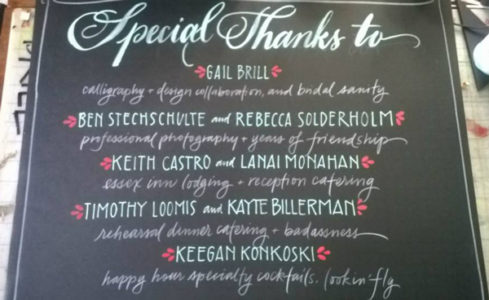 Special Thanks to
GAIL BRILL
calligraphy + design collaboration, and bridal sanity
BEN STECHSCHULTE and REBECCA SOLDERHOLM
professional photography + years of friendship
KEITH CASTRO and LANAI MONAHAN
essex inn lodging + reception catering
TIMOTHY LOOMIS and KAYTE BILLERMAN
rehearsal dinner catering + badassness
KEEGAN KONKOSKI
happy hour specialty cocktails. lookin' fly